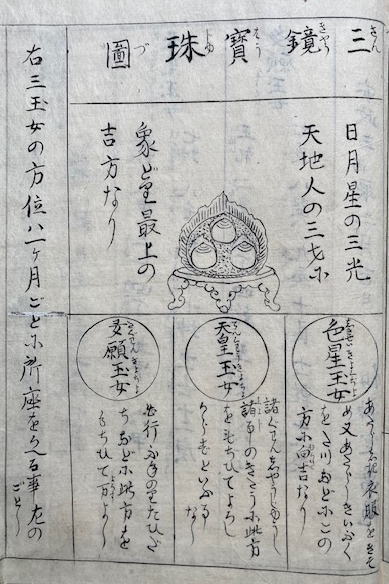 三鏡寳珠圖
日月星の三光
天地人の三才に
象どり最上の
吉方なり
色星玉女
あたらしき衣服をきそ
め又あたらしきいふく
をたつなどにこの
方に向吉なり
天皇玉女
諸事のきたうに此方
をもちひてよろし
からずといふ
なし
多願玉女
ふねのりたびだ
ちなどに此方を
もちひて万よし
右三玉女の方位ハ一ヶ月ごとに所座をかへる事左の
ごとし